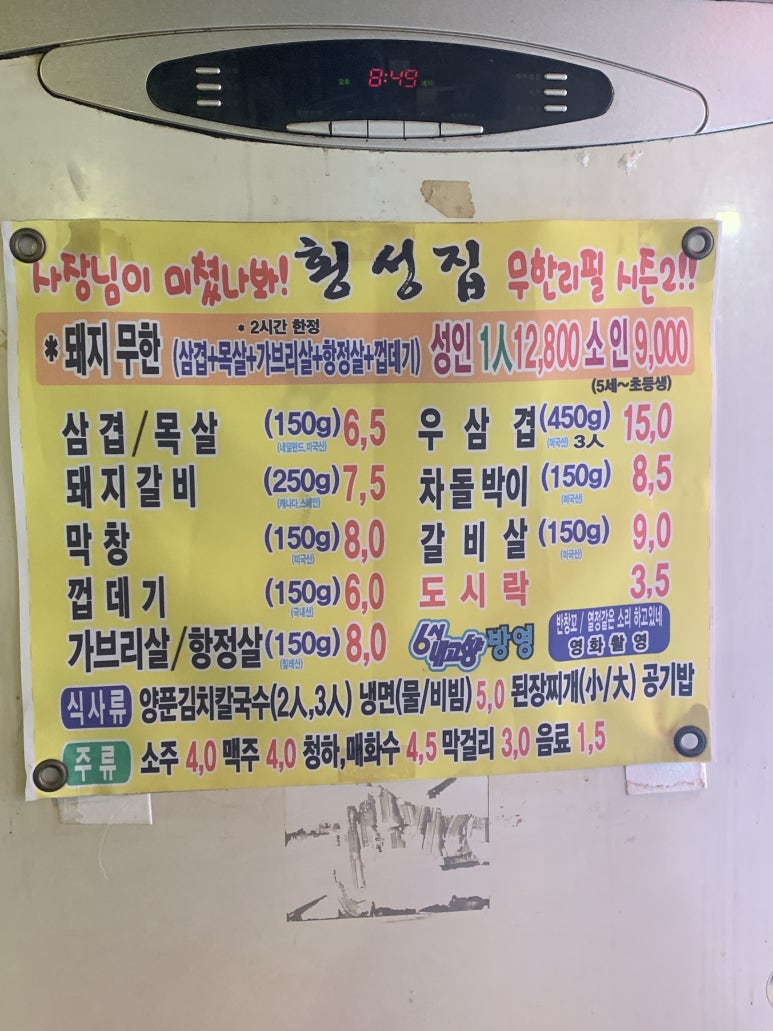 오후 8:49 예약
사장님이 미쳤나봐! 횡성집 무한리필 시즌2!!
* 2시간 한정
* 돼지 무한 (삼겹+목살+가브리살+항정살+껍데기) 성인 1人 12,800 소인 9,000
(5세~초등생)
삼겹/목살 (150g) 6,5
돼지갈비 (250g) 7,5
(캐나다, 스페인)
막창 (150g) 8,0
(미국산)
껍데기 (150g) 6,0
(국내산)
가브리살/항정살 (150g) 8,0
(칠레산)
우삼겹 (450g) 15,0
(미국산) 3人
차돌박이 (150g) 8,5
(미국산)
갈비살 (150g) 9,0
(미국산)
도시락 3,5
6시 내고향 방영
반창꼬 / 열정같은 소리 하고있네
영화촬영
식사류 양푼김치칼국수(2人,3人) 냉면(물/비빔) 5,0 된장찌개(小/大) 공기밥
주류 소주 4,0 맥주 4,0 청하,매화수 4,5 막걸리 3,0 음료 1,5